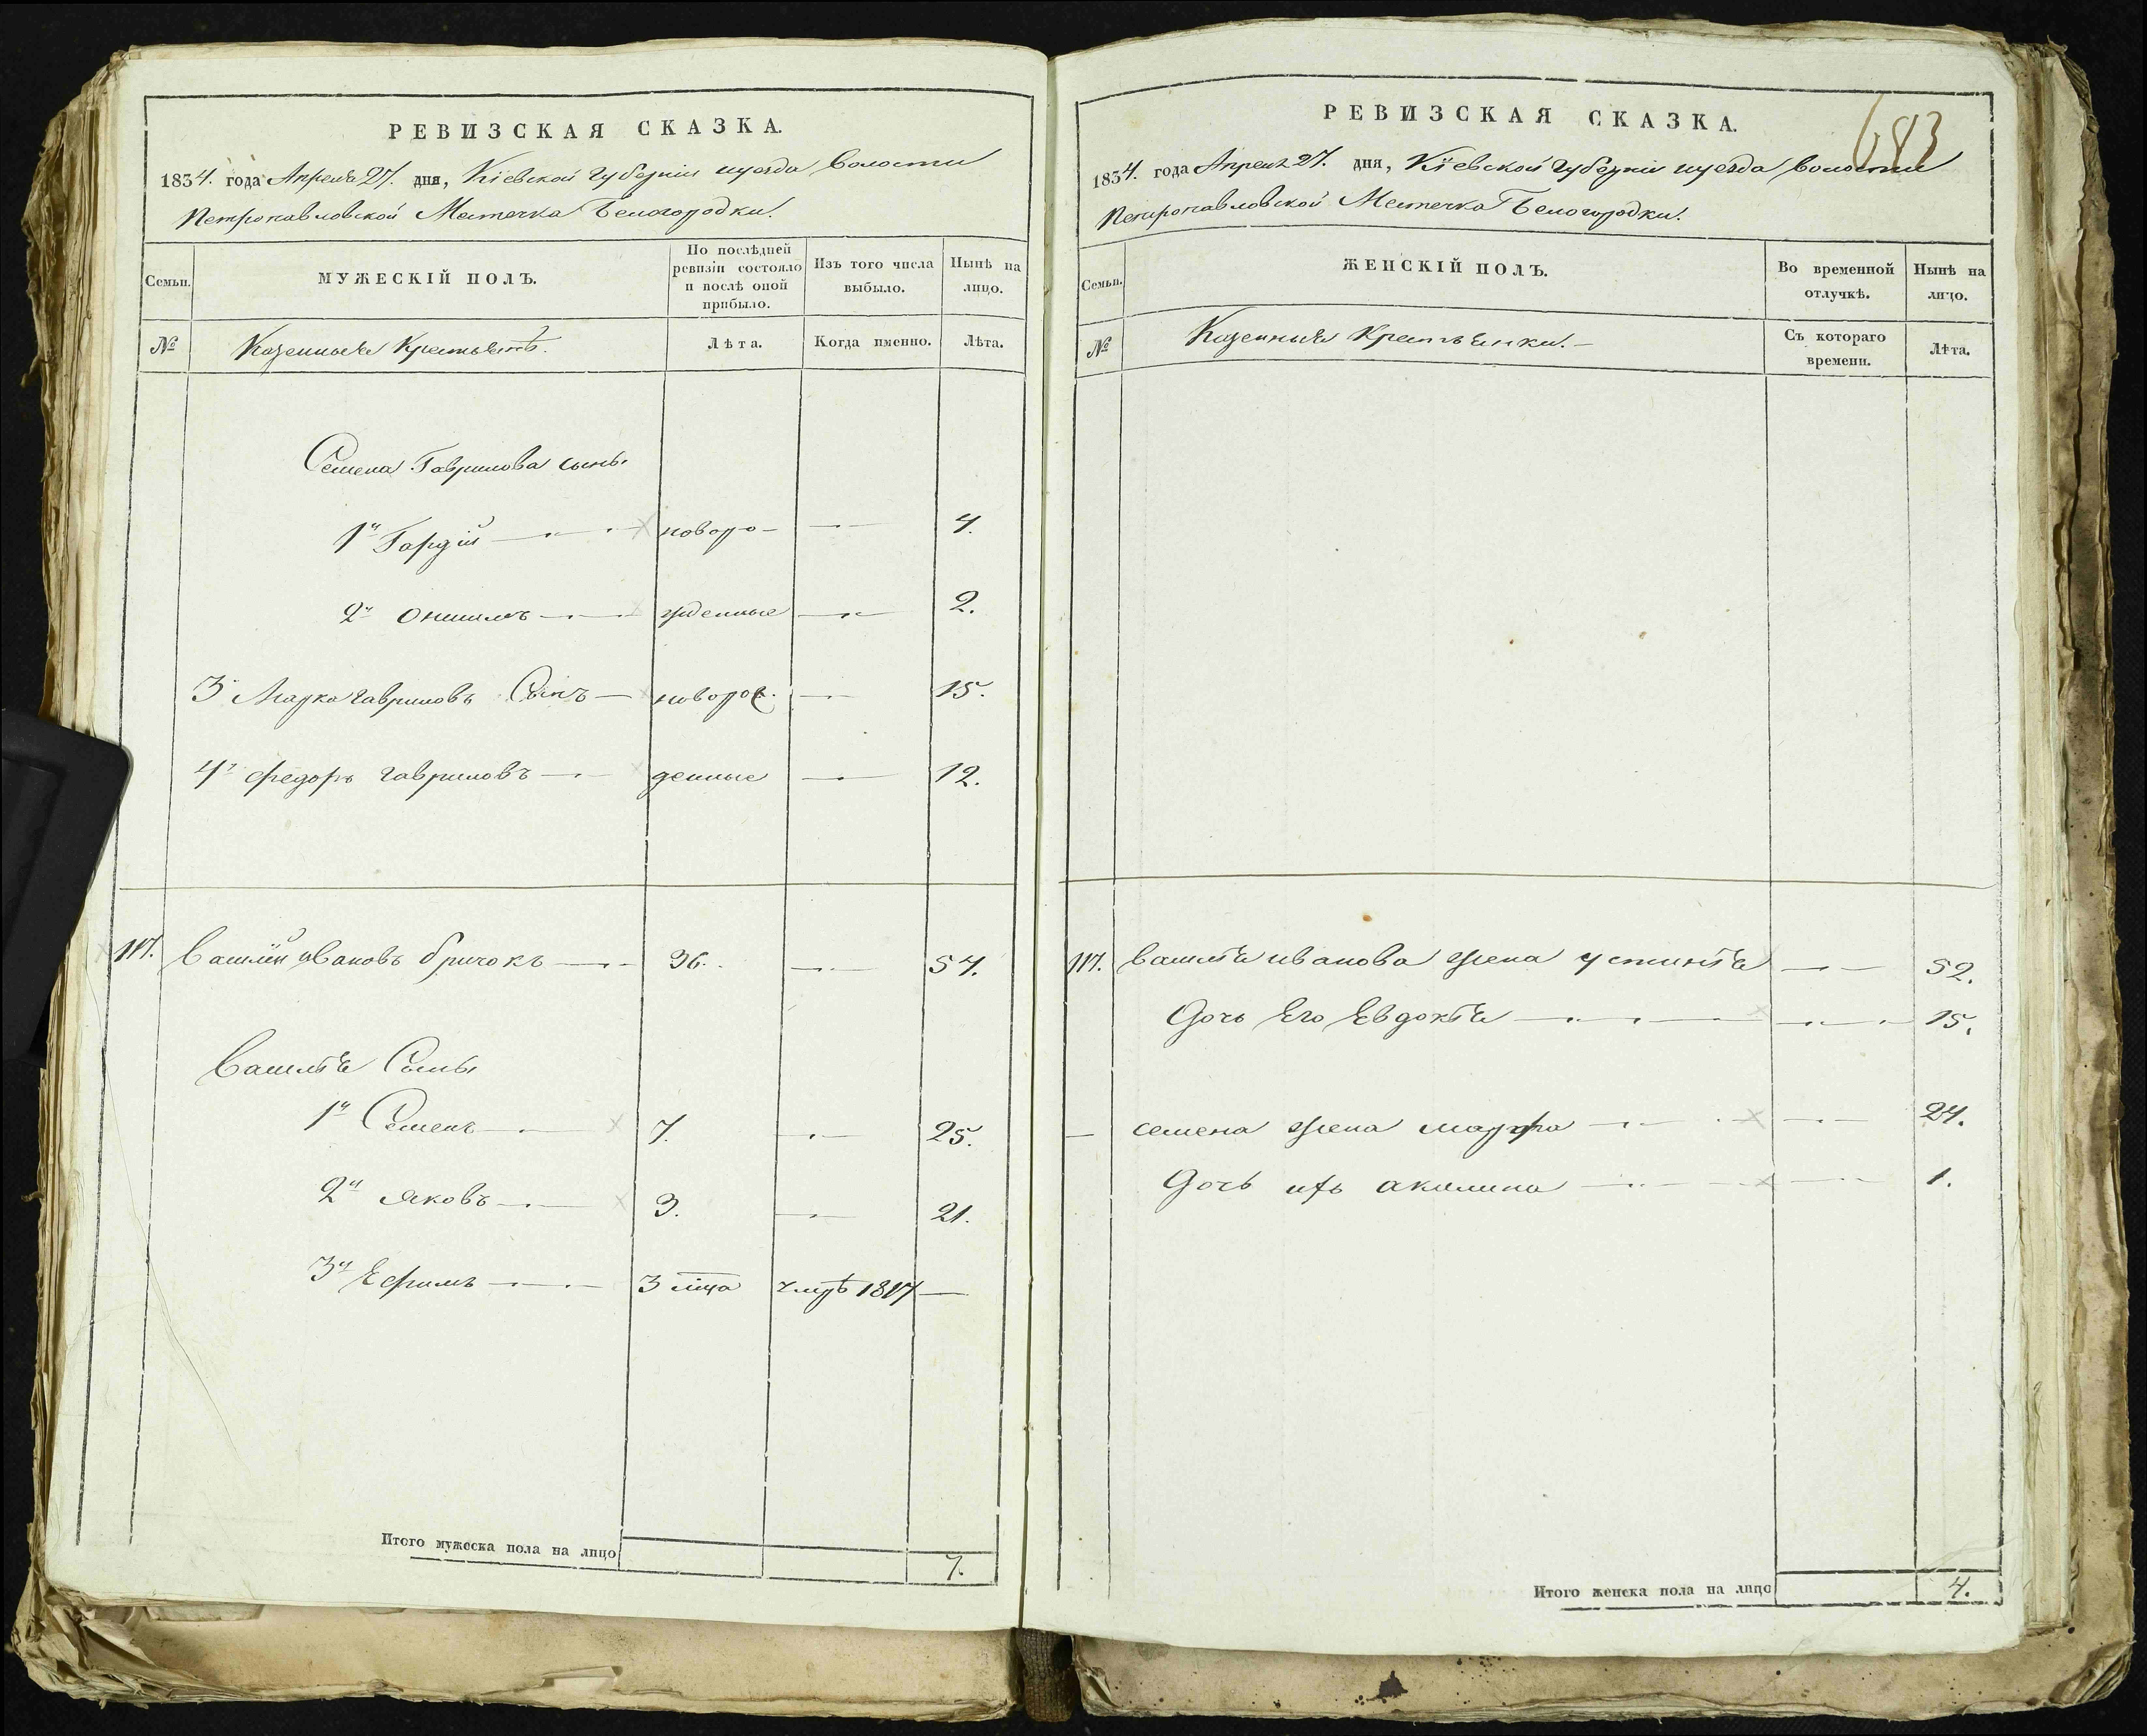 РЕВИЗСКАЯ СКАЗКА.
1834. года Апреля 27. дня, Кіевской губерніи уезда волости
Петропавловской Местечка Белогородки.
Семьи.
МУЖЕСКІЙ ПОЛЪ.
По послѣдней ревизіи состояло и послѣ оной прибыло.
Изъ того числа выбыло.
Нынѣ на лицо.
№
Казенныя Крестьянѣ.
Лѣта.
Когда именно.
Лѣта.
Семена Гаврилова сыны
1й Гордій новоро- 4.
2й Онисимъ жденные 2.
3 Марко Гавриловъ Сынъ новорож. 15.
4й Федоръ Гавриловъ денные 12.
117. Василій Ивановъ бричокъ 36. 54.
Василія Сыны
1й Семенъ 7. 25.
2й Яковъ 3. 21.
3й Ефимъ 3 мца умрѣ 1817
Итого мужеска пола на лицо 7.
РЕВИЗСКАЯ СКАЗКА.
683
1834. года Апреля 27. дня, Кіевской губерніи уезда волости
Петропавловской Местечка Белогородки.
Семьи.
ЖЕНСКІЙ ПОЛЪ.
Во временной отлучкѣ.
Нынѣ на лицо.
№
Казенныя Крестьянки.
Съ котораго времени.
Лѣта.
117. Василія иванова жена устинія 52.
Дочь Его Евдокія 15.
семена жена марфа 24.
Дочь ихъ акилина 1.
Итого женска пола на лицо 4.